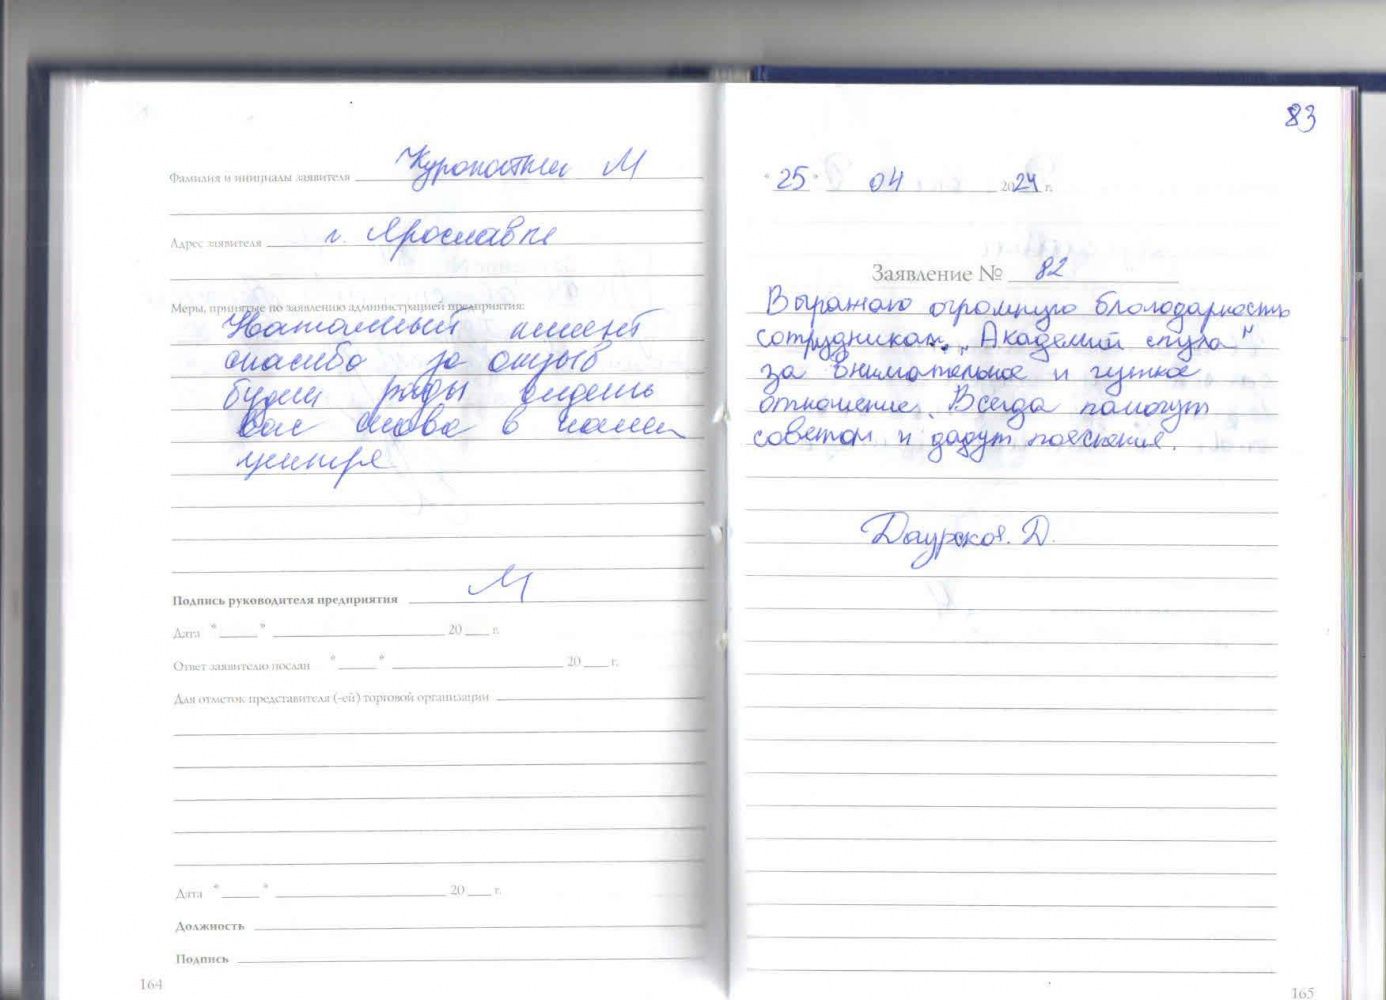 Фамилия и инициалы заявителя Куропаткин М
Адрес заявителя г. Ярославль
Меры, принятые по заявлению администрацией предприятия:
клиент
спасибо за отзыв
будем рады видеть
вас снова в нашем
центре
Подпись руководителя предприятия М
Дата " " 20 г.
Ответ заявителю послан " " 20 г.
Для отметок представителя (-ей) торговой организации
Дата " " 20 г.
Должность
Подпись
164
83
"25" 04 2024 г.
Заявление № 82
Выражаю огромную благодарность
сотрудникам "Академии слуха"
за внимательное и чуткое
отношение. Всегда помогут
советом и дадут пояснения.
Даурская. Д.
165